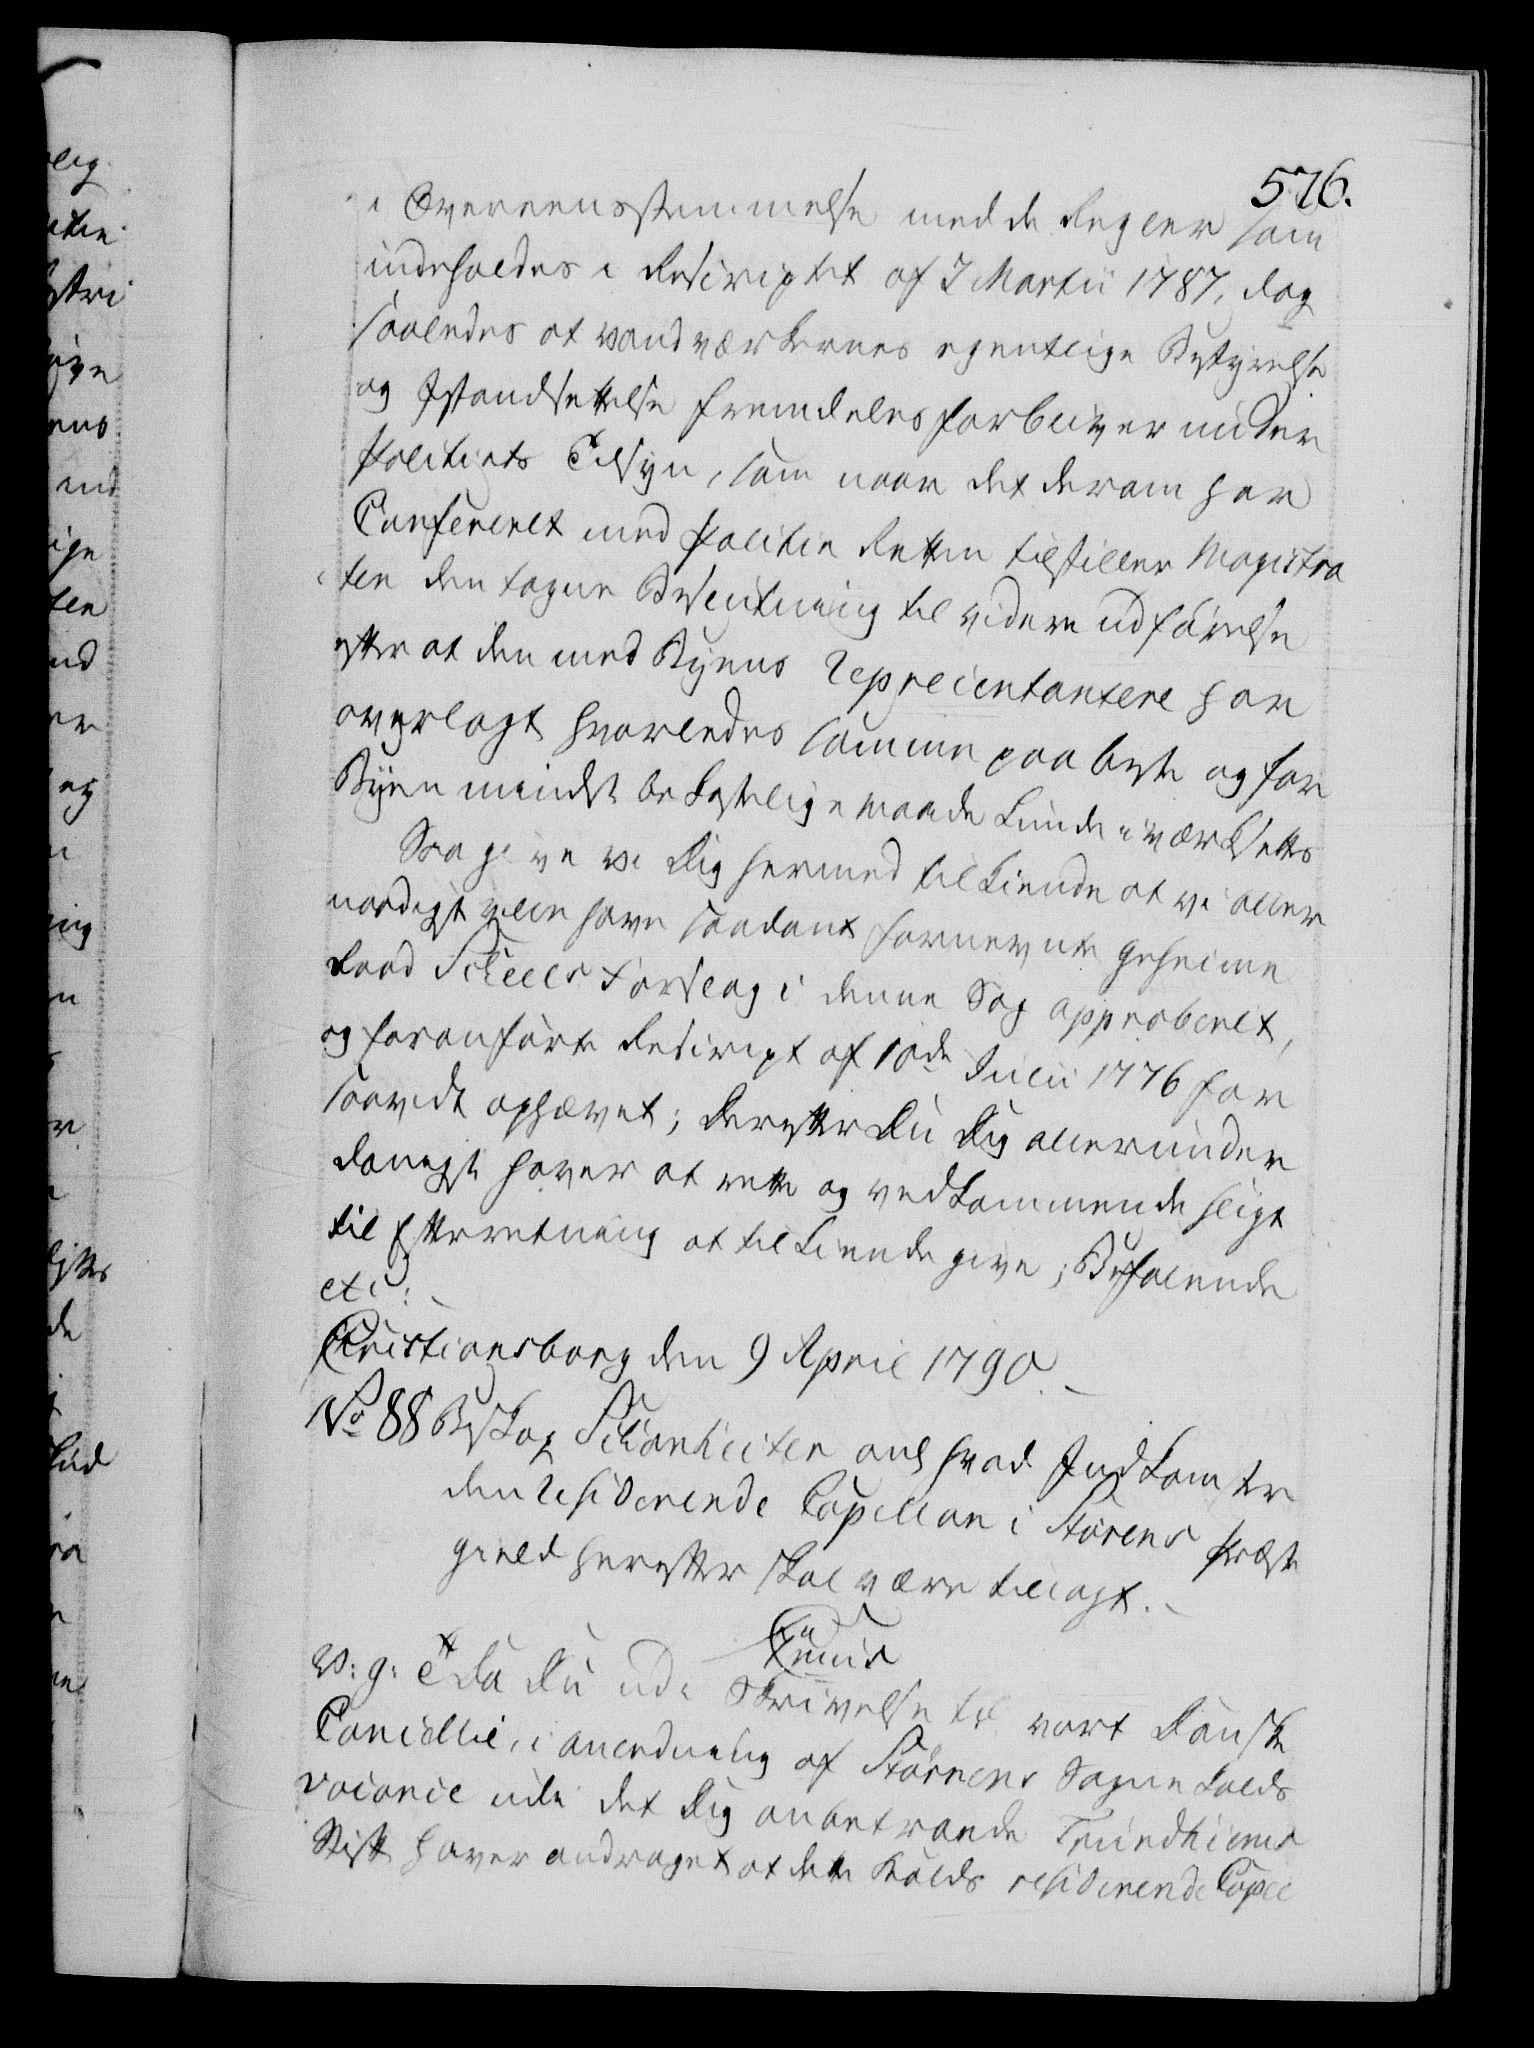 576.
i Overeensstemmelse med de Regler som
indeholdes i Rescriptet af 7 Martii 1787, dog
saaledes at vandværkernes egentlige Bestyrelse
og Istandsættelse fremdeles forbliver under
Politiets Tilsyn, som naar det derom har
Confereret med Politie Retten tilstiller Magistra
ten den tagne Beslutning til videre udførelse
efter at den med Byens Repræsentantere har
overlagt hvorledes samme paa beste og for
Byen mindst bekostelige maade kunde iværksettes
Saa give vi Dig hermed tilkiende at vi aller
naadigst ville have saadant fornevnte Geheime
Raad Scheels Forslag i denne Sag approberet,
og foranførte Rescript af 10de Julii 1776 for
saavidt ophævet; Derefter Du Dig allerunder
danigst haver at rette og vedkommende sligt
til Efterretning at tilkiende give; Befalende
etc:
Christiansborg den 9 April 1790.
No 88 Biskop Schønheiter ang hvad Indkomster
den residerende Capellan i Størens Præste
gield herefter skal være tillagt.
Trund
V: g: T Da Du udi Skrivelse til vort Danske
Cancellie, i anledning af Størens Sognekalds
vacance udi det Dig anbetroede Trundhiems
Stift haver andraget at dette Kalds residerende Capel